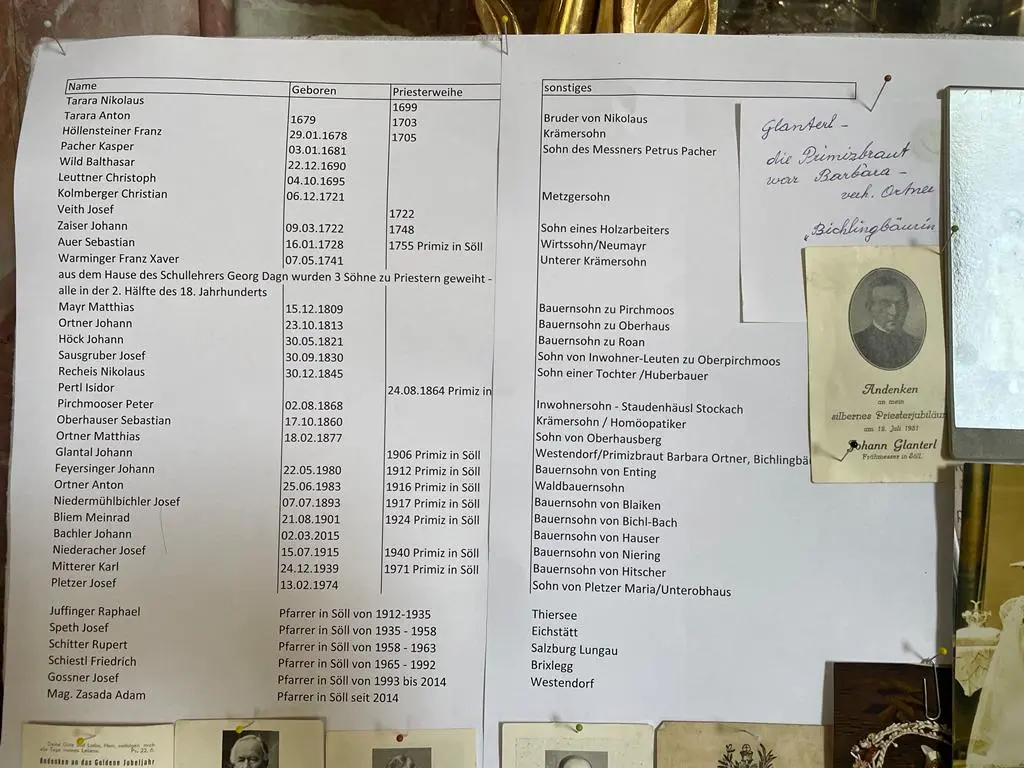 Name Geboren Priesterweihe sonstiges
Tarara Nikolaus 1699
Tarara Anton 1679 1703 Bruder von Nikolaus
Höllensteiner Franz 29.01.1678 1705 Krämersohn
Pacher Kasper 03.01.1681 Sohn des Messners Petrus Pacher
Wild Balthasar 22.12.1690
Leuttner Christoph 04.10.1695
Kolmberger Christian 06.12.1721 Metzgersohn
Veith Josef 1722
Zaiser Johann 09.03.1722 1748 Sohn eines Holzarbeiters
Auer Sebastian 16.01.1728 1755 Primiz in Söll Wirtssohn/Neumayr
Warminger Franz Xaver 07.05.1741 Unterer Krämersohn
aus dem Hause des Schullehrers Georg Dagn wurden 3 Söhne zu Priestern geweiht -
alle in der 2. Hälfte des 18. Jahrhunderts
Mayr Matthias 15.12.1809 Bauernsohn zu Pirchmoos
Ortner Johann 23.10.1813 Bauernsohn zu Oberhaus
Höck Johann 30.05.1821 Bauernsohn zu Roan
Sausgruber Josef 30.09.1830 Sohn von Inwohner-Leuten zu Oberpirchmoos
Recheis Nikolaus 30.12.1845 Sohn einer Tochter /Huberbauer
Pertl Isidor 24.08.1864 Primiz in
Pirchmooser Peter 02.08.1868 Inwohnersohn - Staudenhäusl Stockach
Oberhauser Sebastian 17.10.1860 Krämersohn / Homöopatiker
Ortner Matthias 18.02.1877 Sohn von Oberhausberg
Glantal Johann 1906 Primiz in Söll Westendorf/Primizbraut Barbara Ortner, Bichlingbäu
Feyersinger Johann 22.05.1980 1912 Primiz in Söll Bauernsohn von Enting
Ortner Anton 25.06.1983 1916 Primiz in Söll Waldbauernsohn
Niedermühlbichler Josef 07.07.1893 1917 Primiz in Söll Bauernsohn von Blaiken
Bliem Meinrad 21.08.1901 1924 Primiz in Söll Bauernsohn von Bichl-Bach
Bachler Johann 02.03.2015 Bauernsohn von Hauser
Niederacher Josef 15.07.1915 1940 Primiz in Söll Bauernsohn von Niering
Mitterer Karl 24.12.1939 1971 Primiz in Söll Bauernsohn von Hitscher
Pletzer Josef 13.02.1974 Sohn von Pletzer Maria/Unterobhaus
Juffinger Raphael Pfarrer in Söll von 1912-1935 Thiersee
Speth Josef Pfarrer in Söll von 1935 - 1958 Eichstätt
Schitter Rupert Pfarrer in Söll von 1958 - 1963 Salzburg Lungau
Schiestl Friedrich Pfarrer in Söll von 1965 - 1992 Brixlegg
Gossner Josef Pfarrer in Söll von 1993 bis 2014 Westendorf
Mag. Zasada Adam Pfarrer in Söll seit 2014
Glanterl -
die Primizbraut
war Barbara -
verh. Ortner
"Bichlingbäurin
Andenken
an mein
silbernes Priesterjubiläum
am 12. Juli 1931
Johann Glanterl
Frühmesser in Söll.
Deine Güte und Liebe, Herr, verfolgen mich
alle Tage meines Lebens. Ps. 22, 6.
Andenken an das Goldene Jubeljahr